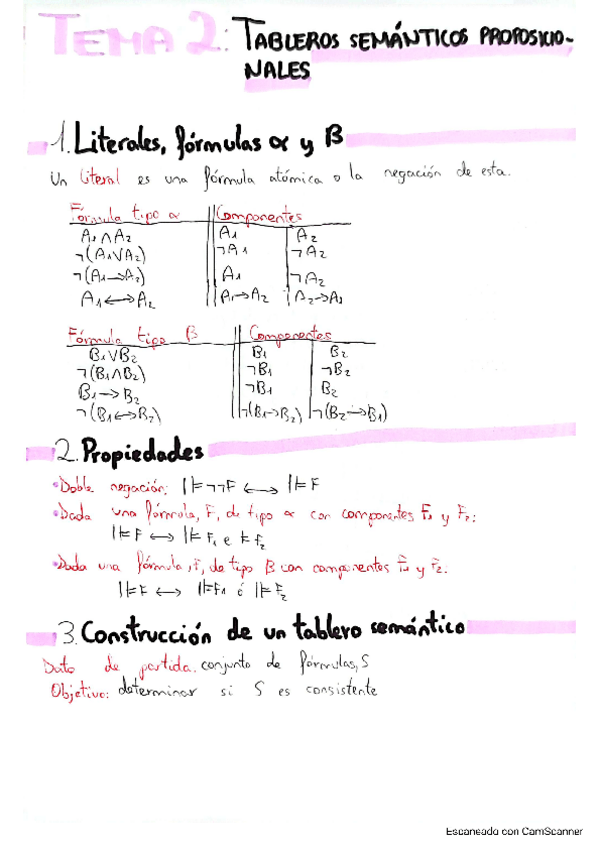 TEMA 2: TABLEROS SEMÁNTICOS PROPOSICIO-
NALES
1. Literales, fórmulas α y β
Un literal es una fórmula atómica o la negación de esta.
Fórmula tipo α Componentes
A₁∧A₂ A₁ A₂
¬(A₁∨A₂) ¬A₁ ¬A₂
¬(A₁→A₂) A₁ ¬A₂
A₁↔A₂ A₁→A₂ A₂→A₁
Fórmula tipo β Componentes
B₁∨B₂ B₁ B₂
¬(B₁∧B₂) ¬B₁ ¬B₂
B₁→B₂ ¬B₁ B₂
¬(B₁↔B₂) ¬(B₁→B₂) ¬(B₂→B₁)
2. Propiedades
•Doble negación: I⊨¬¬F ↔ I⊨F
•Dada una fórmula, F, de tipo α con componentes F₁ y F₂:
I⊨F ↔ I⊨F₁ e ⊨F₂
•Dada una fórmula, F, de tipo β con componentes F₁ y F₂:
I⊨F ↔ I⊨F₁ ó I⊨F₂
3. Construcción de un tablero semántico
Dato de partida: conjunto de fórmulas, S
Objetivo: determinar si S es consistente
Escaneado con CamScanner